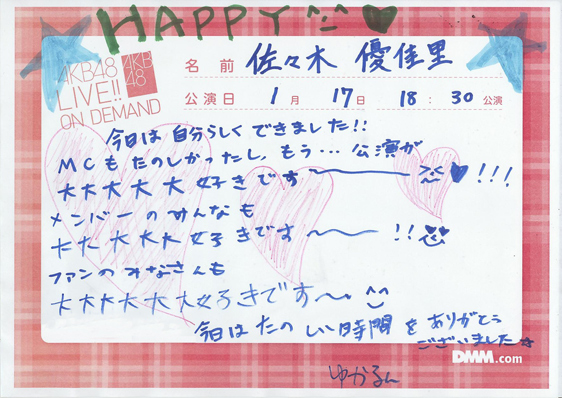 HAPPY
AKB48
LIVE!!
ON DEMAND
AKB
48
名前 佐々木 優佳里
公演日 1月 17日 18:30公演
今日は自分らしくできました!!
MCもたのしかったし、もう… 公演が
大大大大大好きです〜!!!
メンバーのみんなも
大大大大大好きです〜!!
ファンのみなさんも
大大大大大大大好きです〜。
今日はたのしい時間をありがとう
ございました☆
DMM.com
ゆかるん